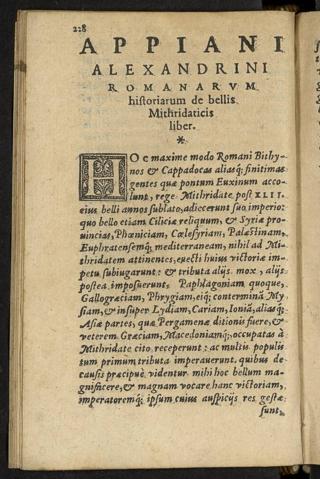 228
APPIANI
ALEXANDRINI
ROMANARVM
historiarum de bellis
Mithridaticis
liber.
*
HOc maxime modo Romani Bithy-
nos & Cappadocas aliasq; finitimas
gentes quæ pontum Euxinum acco-
lunt, rege Mithridate post XLII.
eius belli annos sublato, adiecerunt suo imperio:
quo bello etiam Ciliciæ reliquum, & Syriæ pro-
uincias, Phœniciam, Cœlesyriam, Palæstinam,
Euphratensemq; mediterraneam, nihil ad Mi-
thridatem attinentes, euecti huius victoriæ im-
petu subiugarunt: & tributa alijs mox, alijs
postea imposuerunt, Paphlagoniam quoque,
Gallogræciam, Phrygiam, eiq; conterminā My
siam, & insuper Lydiam, Cariam, Ioniā, aliasq;
Asiæ partes, quæ Pergamenæ ditionis fuere, &
veterem Græciam, Macedoniamq; occupatas à
Mithridate cito receperunt: ac multis populis
tum primum tributa imperauerunt. quibus de
causis præcipuè videntur mihi hoc bellum ma-
gnificere, & magnam vocare hanc victoriam,
imperatoremq; ipsum cuius auspicijs res gestæ
sunt,